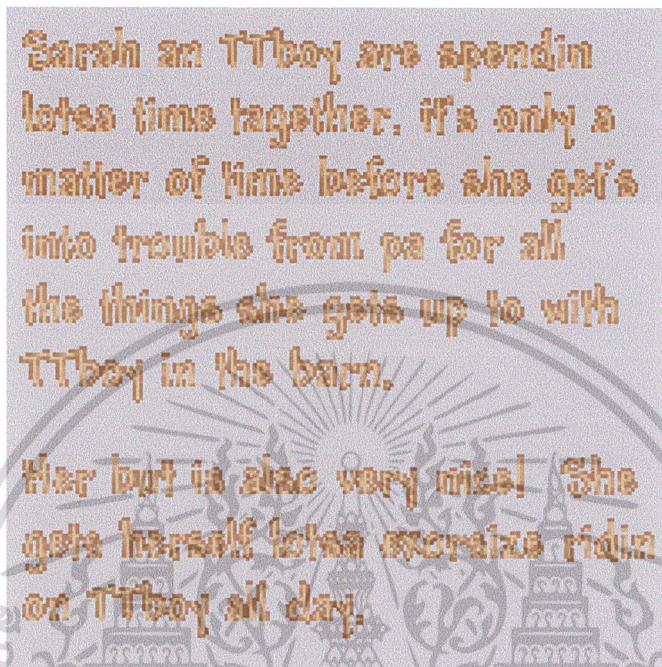 Sarah an TTboy are spendin
lotsa time together. it's only a
matter of time before she get's
into trouble from pa for all
the things she gets up to with
TTboy in the barn.
Her but is also very nice! She
gets herself lotsa exorsize ridin
on TTboy all day.